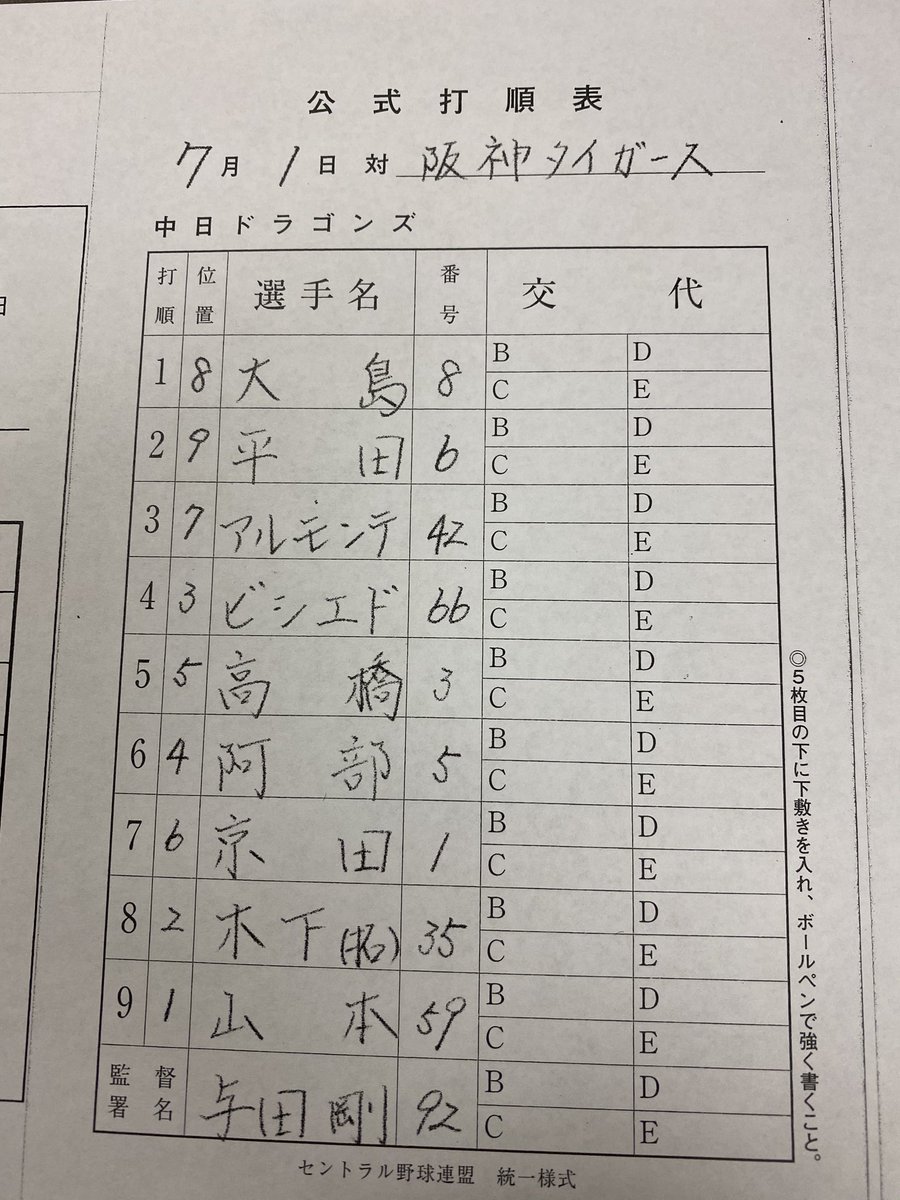 公式打順表
7月1日 対 阪神タイガース
中日ドラゴンズ
打順 位置 選手名 番号 交代
1 8 大島 8 B D
C E
2 9 平田 6 B D
C E
3 7 アルモンテ 42 B D
C E
4 3 ビシエド 66 B D
C E
5 5 高橋 3 B D
C E
6 4 阿部 5 B D
C E
7 6 京田 1 B D
C E
8 2 木下(拓) 35 B D
C E
9 1 山本 59 B D
C E
監督署名 与田剛 92 B D
C E
セントラル野球連盟 統一様式
◎5枚目の下に下敷きを入れ、ボールペンで強く書くこと。
日